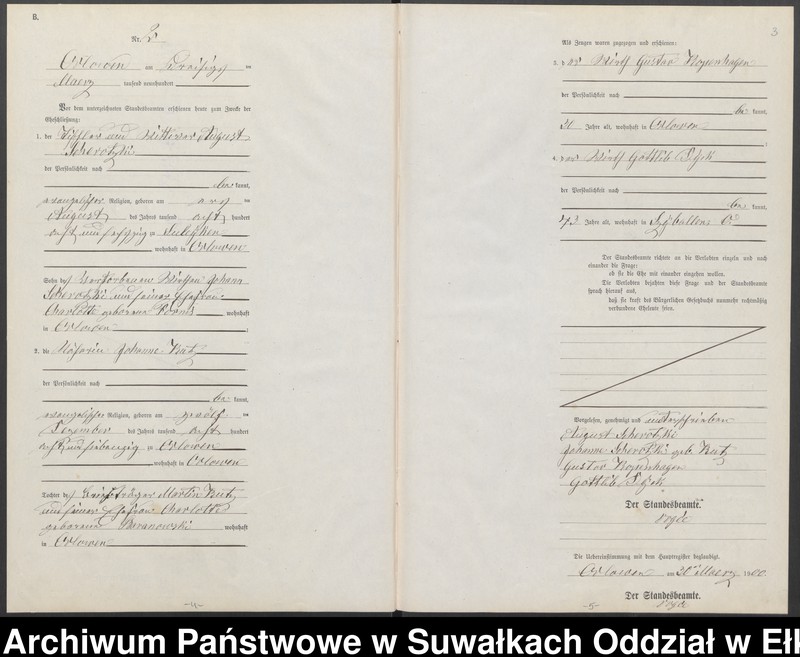 B.
Nr. 2
Orlowen am Dreißigsten
Maerz tausend neunhundert
Vor dem unterzeichneten Standesbeamten erschienen heute zum Zwecke der
Eheschließung:
1. der und Wittwer August
Scherotzki
der Persönlichkeit nach
be kannt,
evangelischer Religion, geboren am
August des Jahres tausend acht hundert
acht und sechzig zu Suleyken
wohnhaft in Orlowen
Sohn des verstorbenen Wirthen Johann
Scherotzki und seiner Ehefrau
Charlotte geborene wohnhaft
in Orlowen ;
2. die Johanne
der Persönlichkeit nach
be kannt,
evangelischer Religion, geboren am zwölften
Dezember des Jahres tausend acht hundert
acht und siebenzig zu Orlowen
wohnhaft in Orlowen
Tochter des Briefträger Martin
und seiner Ehefrau Charlotte
geborene Baranowski wohnhaft
in Orlowen
3
Als Zeugen waren zugezogen und erschienen:
3. der Wirth Gustav Kopenhagen
der Persönlichkeit nach
be kannt,
Jahre alt, wohnhaft in Orlowen ;
4. der Wirth Gottlieb
der Persönlichkeit nach
be kannt,
Jahre alt, wohnhaft in
Der Standesbeamte richtete an die Verlobten einzeln und nach
einander die Frage:
ob sie die Ehe mit einander eingehen wollen.
Die Verlobten bejahten diese Frage und der Standesbeamte
sprach hierauf aus,
daß sie kraft des Bürgerlichen Gesetzbuchs nunmehr rechtmäßig
verbundene Eheleute seien.
Vorgelesen, genehmigt und unterschrieben
August Scherotzki
Johanne Scherotzki geb.
Gustav Kopenhagen
Gottlieb
Der Standesbeamte.
Die Uebereinstimmung mit dem Hauptregister beglaubigt.
Orlowen am 30ten Maerz 1900.
Der Standesbeamte.
-4-
-5-
Archiwum Państwowe w Suwałkach Oddział w Ełk